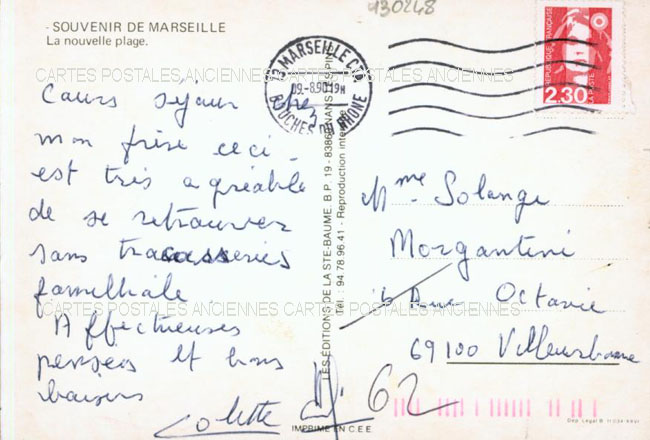 430248
SOUVENIR DE MARSEILLE
La nouvelle plage.
13 MARSEILLE CTA
09.-8.90 19H
BOUCHES DU RHONE
REPUBLIQUE FRANÇAISE
LA POSTE
2,30
CARTES POSTALES ANCIENNES CARTES POSTALES ANCIENNES
Cours sejour chez
mon frère ceci
est très agréable
de se retrouver
sans tracasseries
familliale
Affectueuses
pensées et bons
baisers
Colette
LES EDITIONS DE LA STE-BAUME. B.P. 19 - 83860 NANS LES PINS
Tél.: 94.78.96.41 - Reproduction interdite
Mme Solange
Morgantini
Rue Octavie
69100 Villeurbanne
CARTES POSTALES ANCIENNES CARTES POSTALES ANCIENNES
62
IMPRIMÉ EN C.E.E.